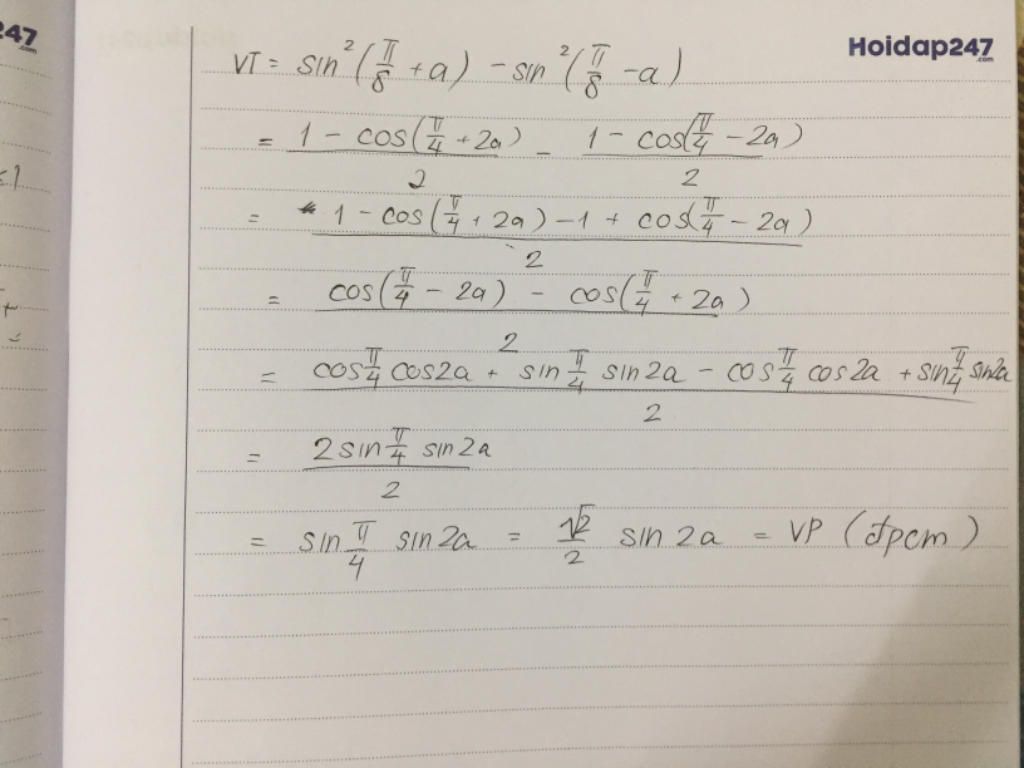 247
.com
Hoidap247
.com
VT = sin²(π/8 + a) - sin²(π/8 - a)
= (1 - cos(π/4 + 2a))/2 - (1 - cos(π/4 - 2a))/2
= (1 - cos(π/4 + 2a) - 1 + cos(π/4 - 2a))/2
= (cos(π/4 - 2a) - cos(π/4 + 2a))/2
= (cos π/4 cos2a + sin π/4 sin2a - cos π/4 cos2a + sin π/4 sin2a)/2
= (2 sin π/4 sin 2a)/2
= sin π/4 sin2a = √2/2 sin 2a = VP (đpcm)